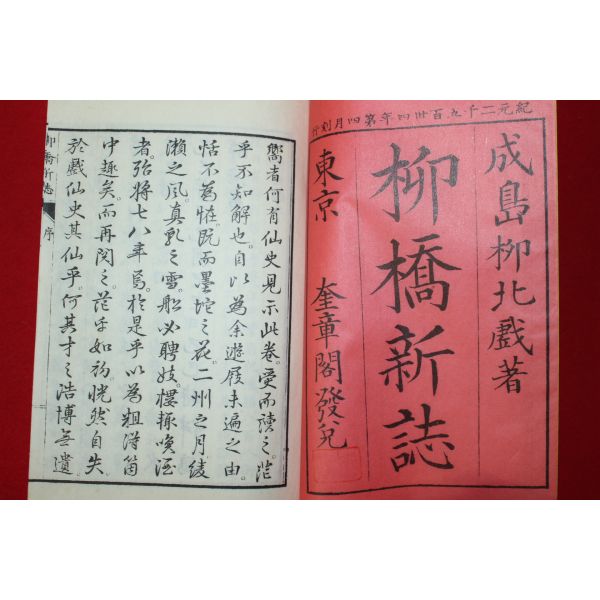 紀元二千五百卅四年第四月刻行
成島柳北戲著
柳橋新誌
東京 奎章閣發兌
嚮者何有仙史見示此卷。受而讀之。茫
乎不知解也。自以為余遊屐未遍之由。
恬不為怪。既而墨堤之花。二州之月。綾
瀬之風。真乳之雪。船必聘妓。樓輒喚酒
者。殆將七八年焉。於是乎以為粗得箇
中趣矣。而再閱之。茫乎如初。恍然自失。
於戲仙史其仙乎。何其才之浩博無遺
柳橋新誌 序